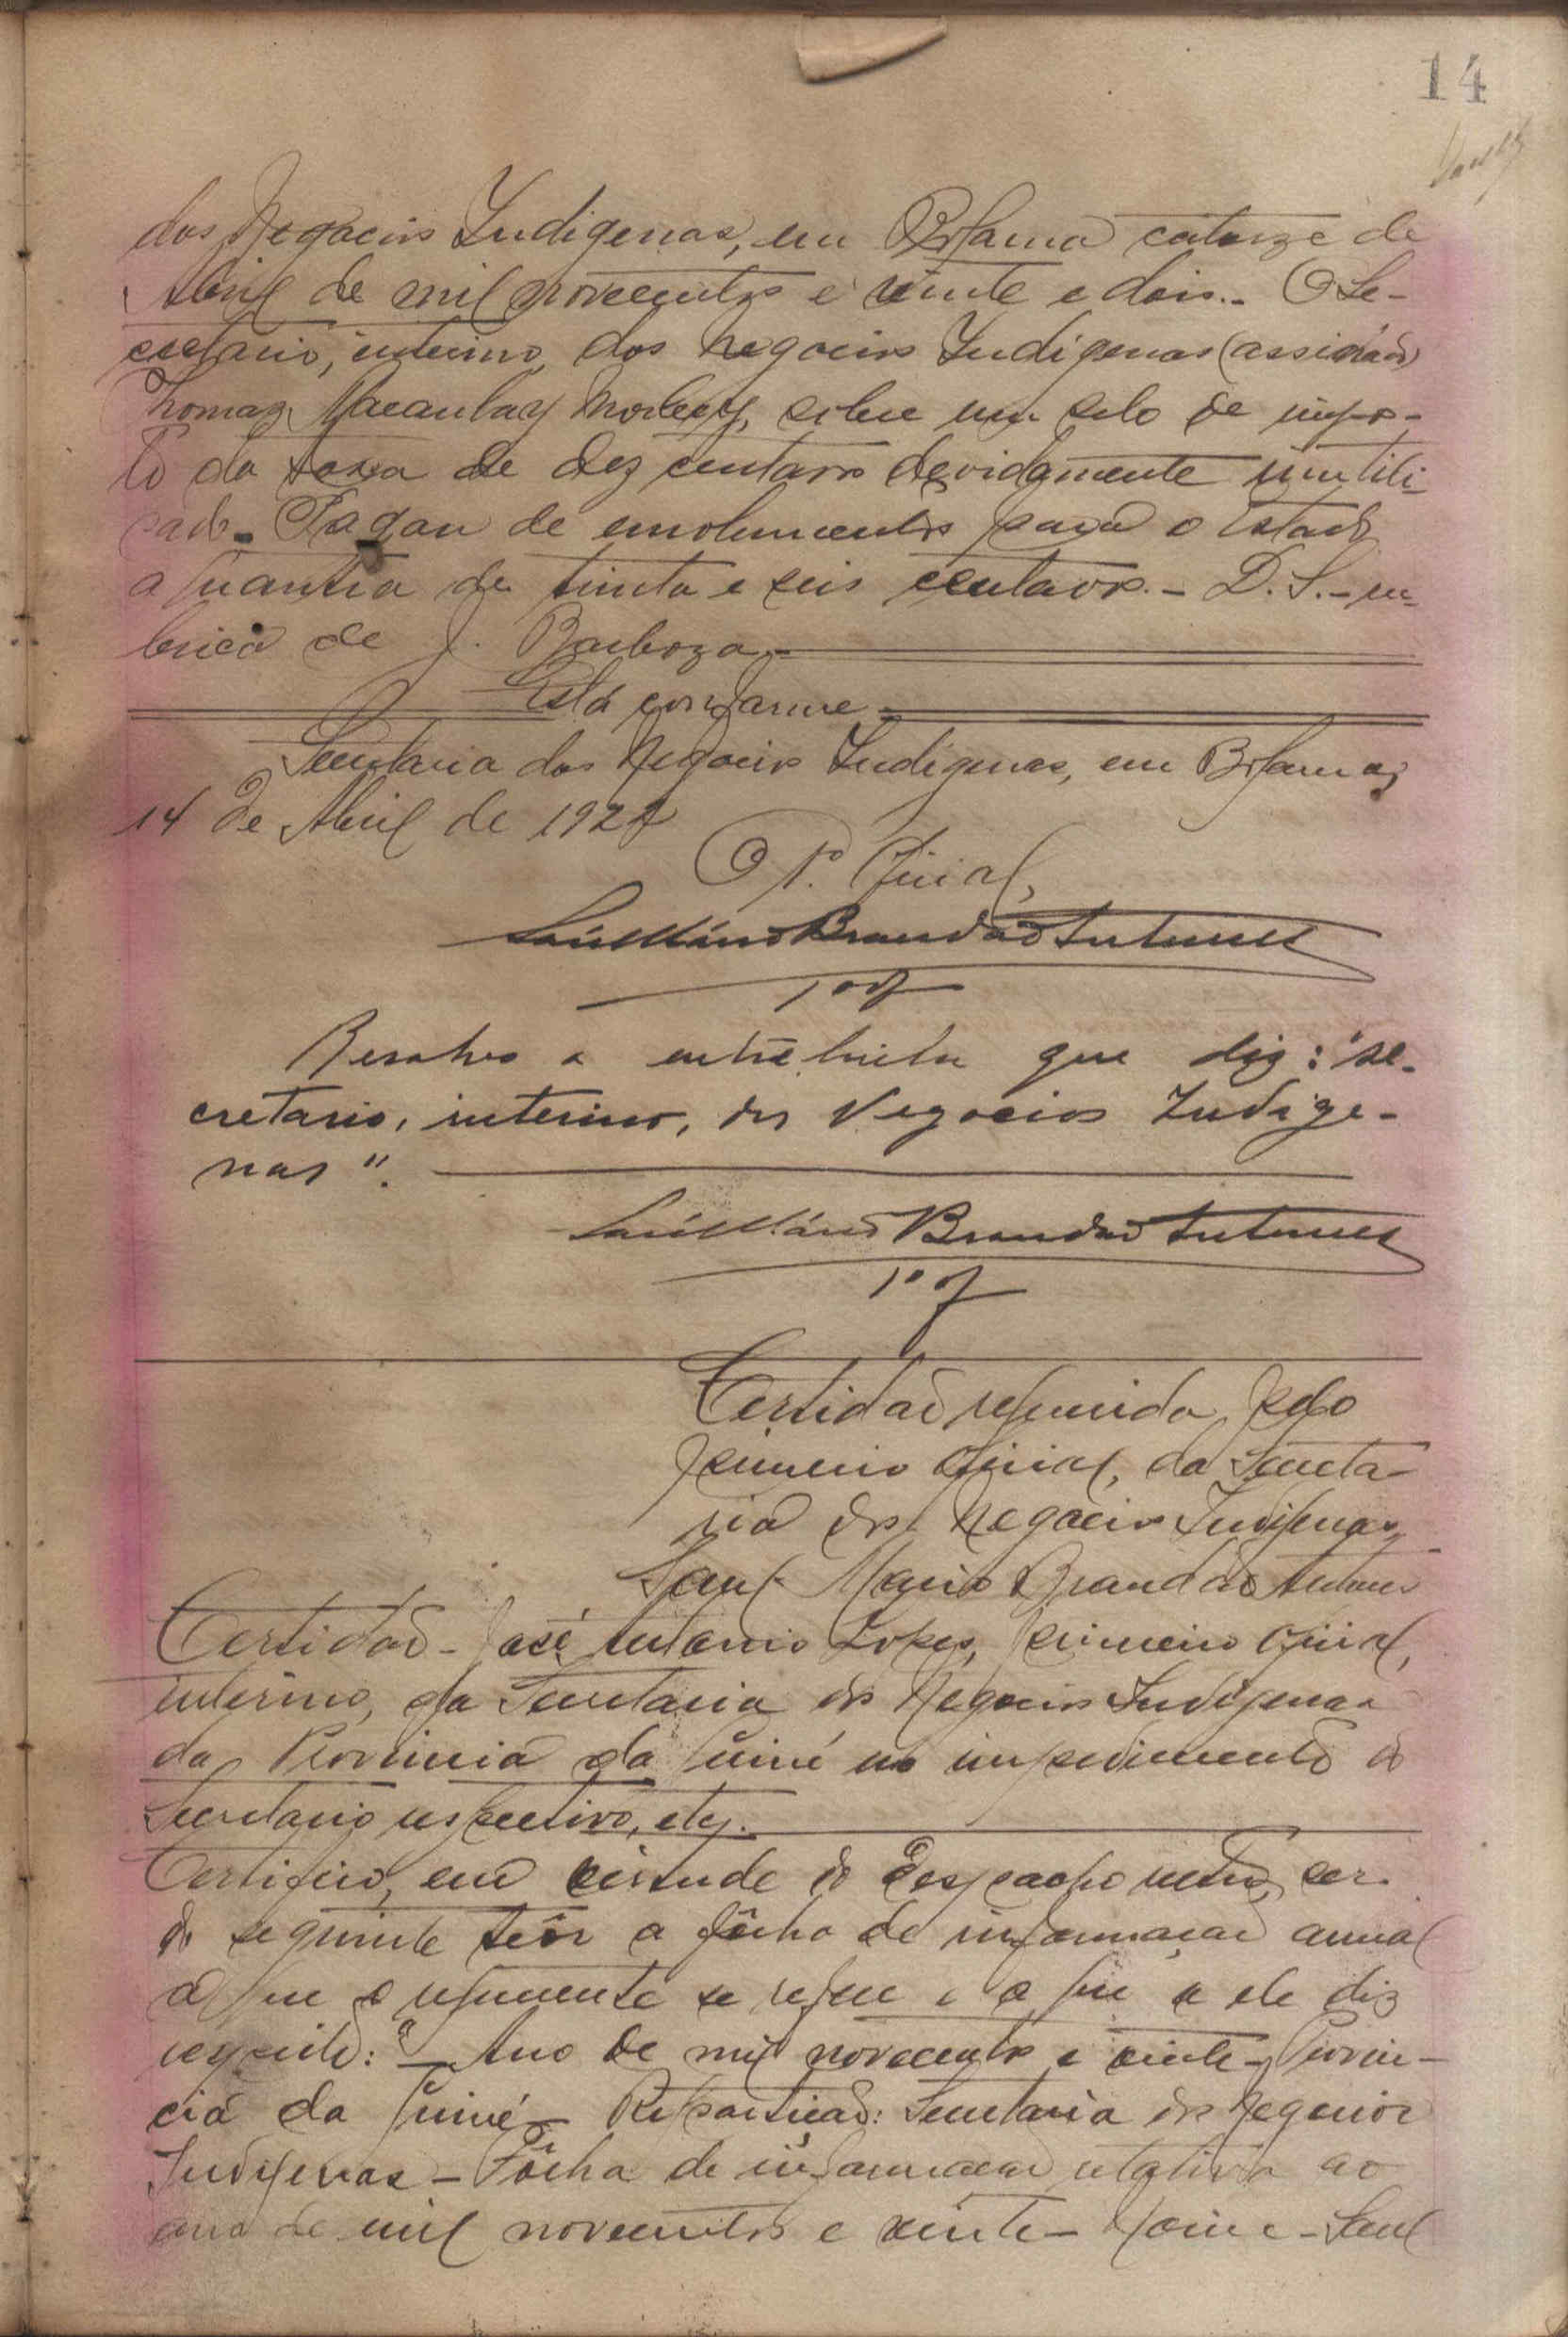 14
dos Negocios Indigenas, em Bolama catorze de
Abril de mil novecentos e vinte e dois.- O Se-
cretario, interino, dos Negocios Indigenas (assinado)
Thomaz Macaulay Morley, sobre um selo de impos-
to da taxa de dez centavos devidamente inutili-
zado. Pagou de emolumentos para o Estado
a quantia de trinta e seis centavos.- D. S.- ru-
brica de J. Barboza.
Está conforme.
Secretaria dos Negocios Indigenas, em Bolama,
14 de Abril de 1922
O 1º. Oficial,
Saúl Mário Brandão Antunes
1º of
Resalvo a entrelinha que diz: "se-
cretario, interino, dos Negocios Indige-
nas".
Saúl Mário Brandão Antunes
1º of
Certidão requerida pelo
primeiro oficial, da Secreta-
ria dos Negocios Indigenas
Saul Mario Brandão Antunes
Certidão - José Antonio Lopes, primeiro oficial,
interino, da Secretaria dos Negocios Indigenas
da Provincia da Guiné no impedimento do
Secretario respectivo, etc.
Certifico, em virtude do despacho retro, ser
do seguinte teôr a fôlha de informação anual
a que o requerente se refere e a que a ele diz
respeito: "- Ano de mil novecentos e vinte - Provin-
cia da Guiné - Repartição: Secretaria dos Negocios
Indigenas - Fôlha de informação relativa ao
ano de mil novecentos e vinte - Nome - Saul